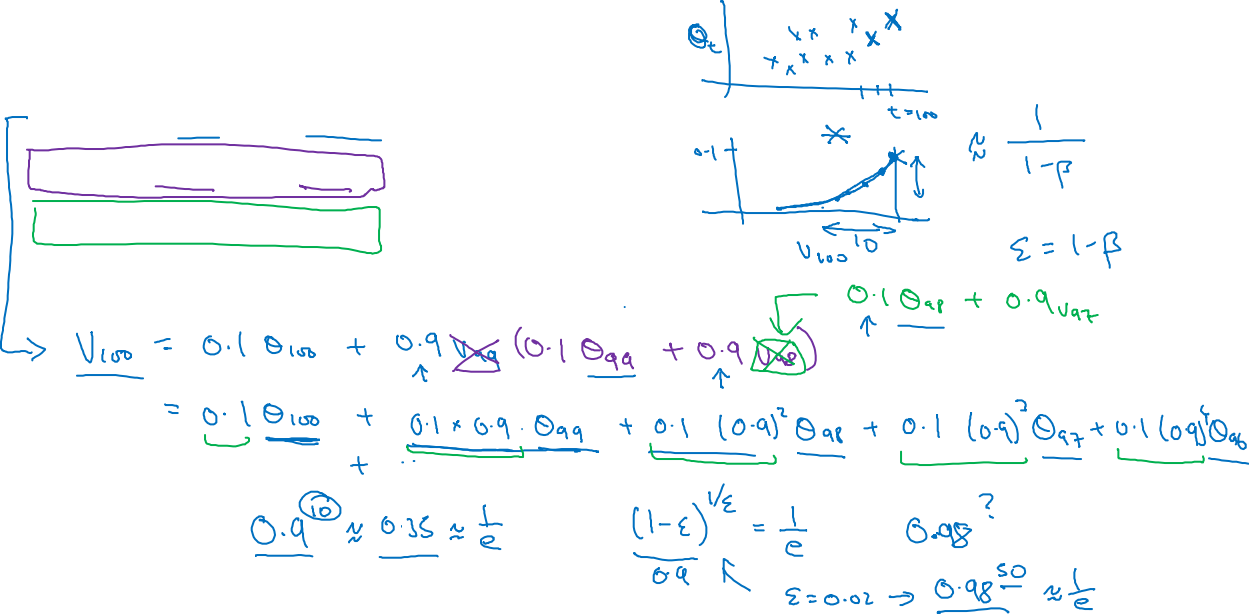 θₜ
t=100
0.1
≈ 1/(1-β)
10
V₁₀₀
ε = 1-β
0.1 θ₉₈ + 0.9 V₉₇
V₁₀₀ = 0.1 θ₁₀₀ + 0.9 V₉₉ (0.1 θ₉₉ + 0.9 V₉₈)
= 0.1 θ₁₀₀ + 0.1 × 0.9 · θ₉₉ + 0.1 (0.9)² θ₉₈ + 0.1 (0.9)³ θ₉₇ + 0.1 (0.9)⁴ θ₉₆
+ ...
0.9¹⁰ ≈ 0.35 ≈ 1/e
(1-ε)^(1/ε) = 1/e
0.98^?
0.9
ε = 0.02 → 0.98⁵⁰ ≈ 1/e